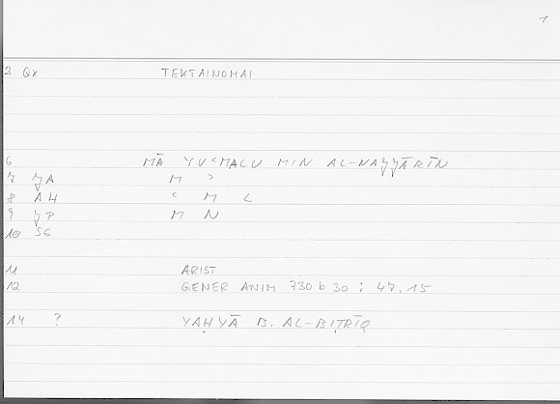 1
2 QX TEKTAINOMAI
6 MĀ YUʿMALU MIN AL-NAJJĀRĪN
7 JA M ʾ
8 AH ʿ M L
9 JP M N
10 SG
11 ARIST
12 GENER ANIM 730 b 30 ; 47.15
14 ? YAḤYĀ B. AL-BIṬRĪQ